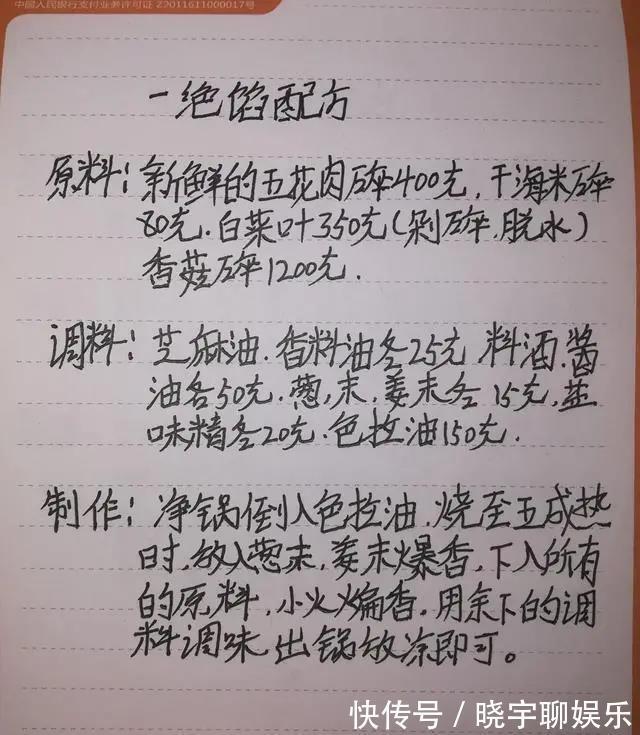 中国人民银行支付业务许可证 Z2011611000017号
一绝馅配方
原料：新鲜的五花肉碎400克，干海米碎
80克．白菜叶350克（剁碎．脱水）
香菇碎1200克．
调料：芝麻油．香料油各25克 料酒．酱
油各50克．葱，末，姜末各15克，盐
味精各20克．色拉油150克．
制作：净锅倒入色拉油．烧至五成热
时，放入葱末，姜末爆香，下入所有
的原料，小火煸香．用余下的调
料调味，出锅放凉即可。
快传号／晓宇聊娱乐